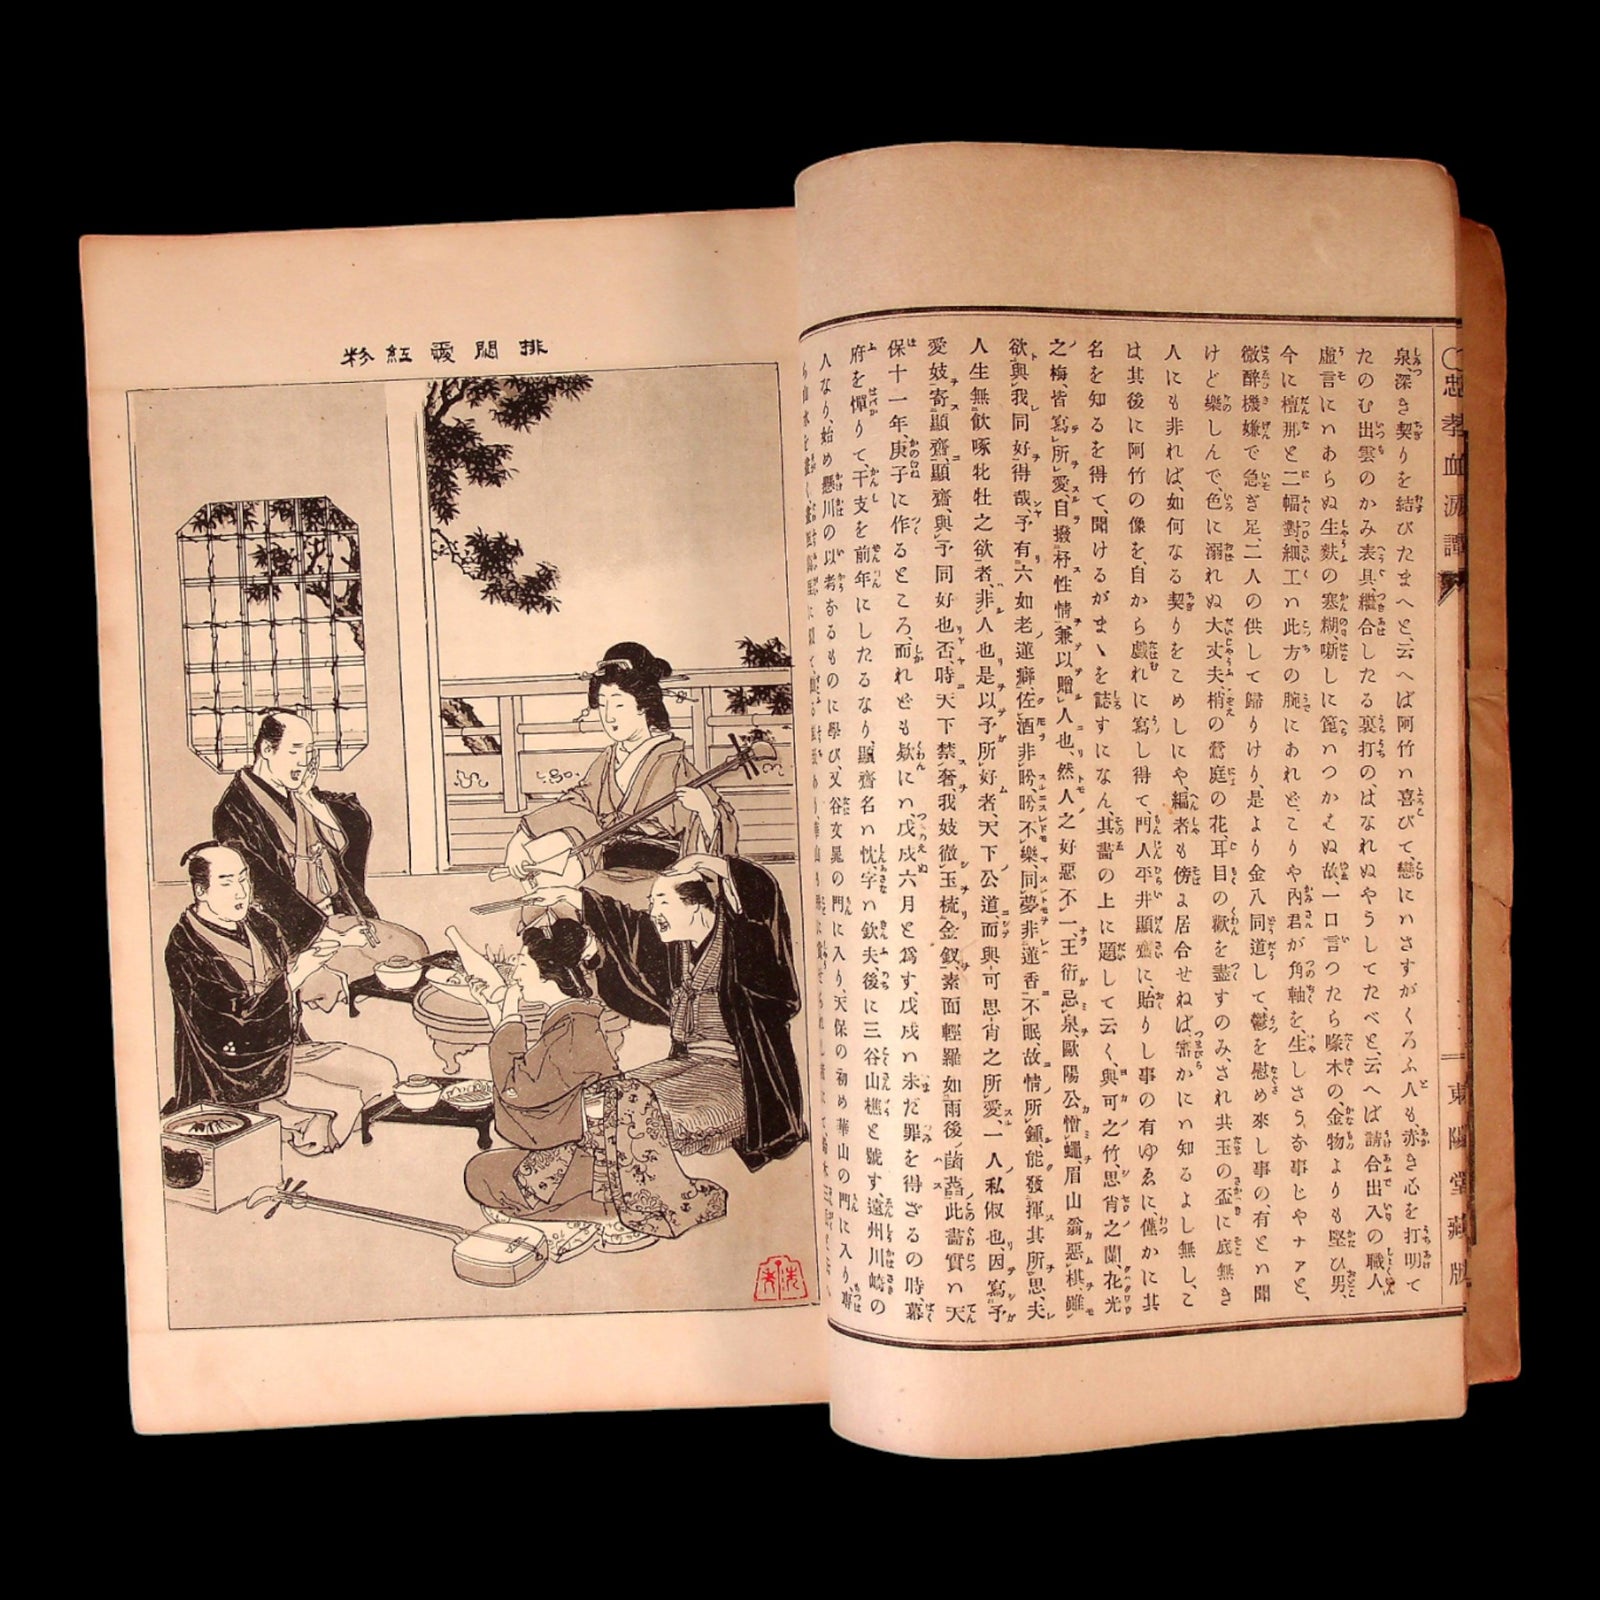 ○忠孝血涙譚
東陽堂藏版
泉、深き契りを結びたまへと、云へば阿竹ハ喜びて、戀にハさすがくろふ人も、赤き心を打明て
たのむ出雲のかみ表具、繼合したる裏打の、はなれぬやうしてたべと、云へば請合出入の職人
虚言にハあらぬ生麩の寒糊、噺しに篦ハつかえぬ故、一口言つたら啄木の、金物よりも堅ひ男、
今に檀那と二幅對、細工ハ此方の腕にあれど、こりや内君が角軸を、生しさうな事じやナァと、
微醉機嫌で急ぎ足、二人の供して歸りけり、是より金八同道して、鬱を慰め來し事の、有とハ聞
けど樂しんで、色に溺れぬ大丈夫、梢の鶯庭の花、耳目の歡を盡すのみ、され共玉の盃に底無き
人にも非れば、如何なる契りをこめしにや、編者も傍よ居合せねば審かにハ知るよし無し、こ
は其後に阿竹の像を、自から戲れに寫し得て門人平井顯齋に、貽りし事の有ゆゑに、僅かに其
名を知るを得て、聞けるがまゝを誌すになん、其畵の上に題して云く、與可之竹、思肖之蘭、花光
之梅、皆寫所愛、自撥杼性情、兼以贈人也、然人之好惡不一、王衍忌泉、歐陽公憎蠅、眉山翁惡棋、雖
欲與我同好得哉、予有六如老蓮癖、佐酒非吟、吟不樂、同夢非蓮香不眠、故情所鍾、能發揮其所思、夫
人生無飮啄牝牡之欲者、非人也、是以予所好者、天下公道、而與可思肖之所愛、一人私俶也、因寫予
愛妓、寄顯齋、顯齋、與予同好也否、時天下禁奢、我妓徹玉梳金釵、素面輕羅如雨後菡萏、此畵實ハ天
保十一年、庚子に作るところ、而れども欵にハ、戊戌六月と爲す、戊戌ハ未だ罪を得ざるの時、幕
府を憚りて、干支を前年にしたるなり、顯齋名ハ忱、字ハ欽夫、後に三谷山樵と號す、遠州川崎の
人なり、始め懸川の以考なるものに學び、又谷文晁の門に入り、天保の初め華山の門に入り、專
排悶愛紅粉